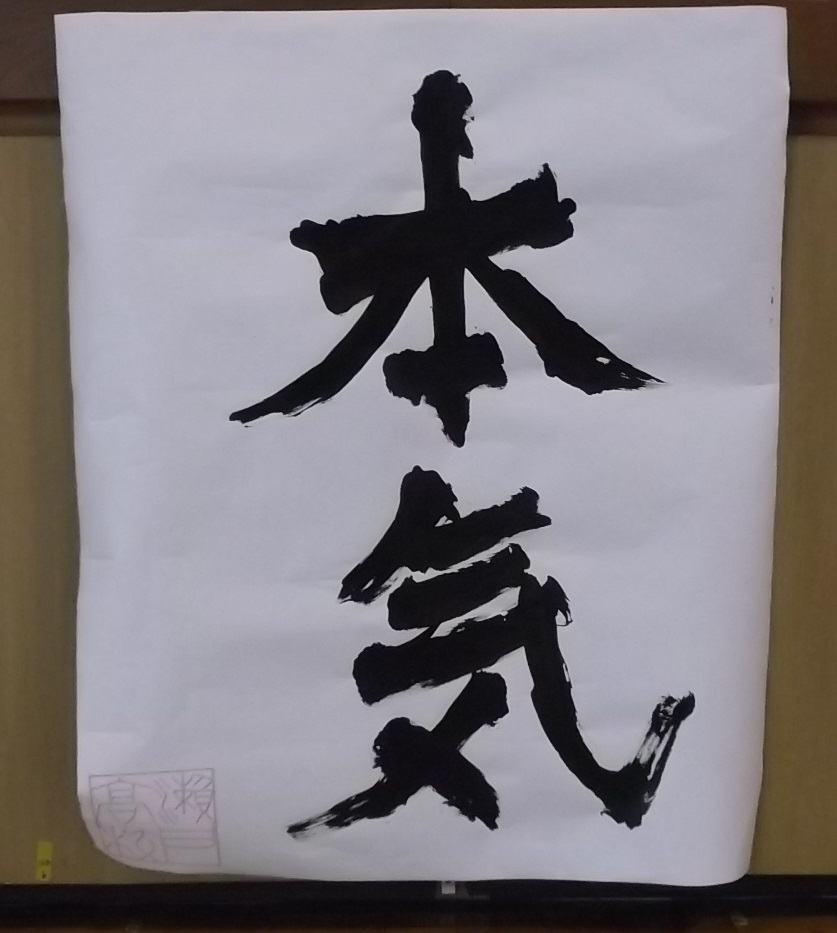 本気
瀬戸
高松